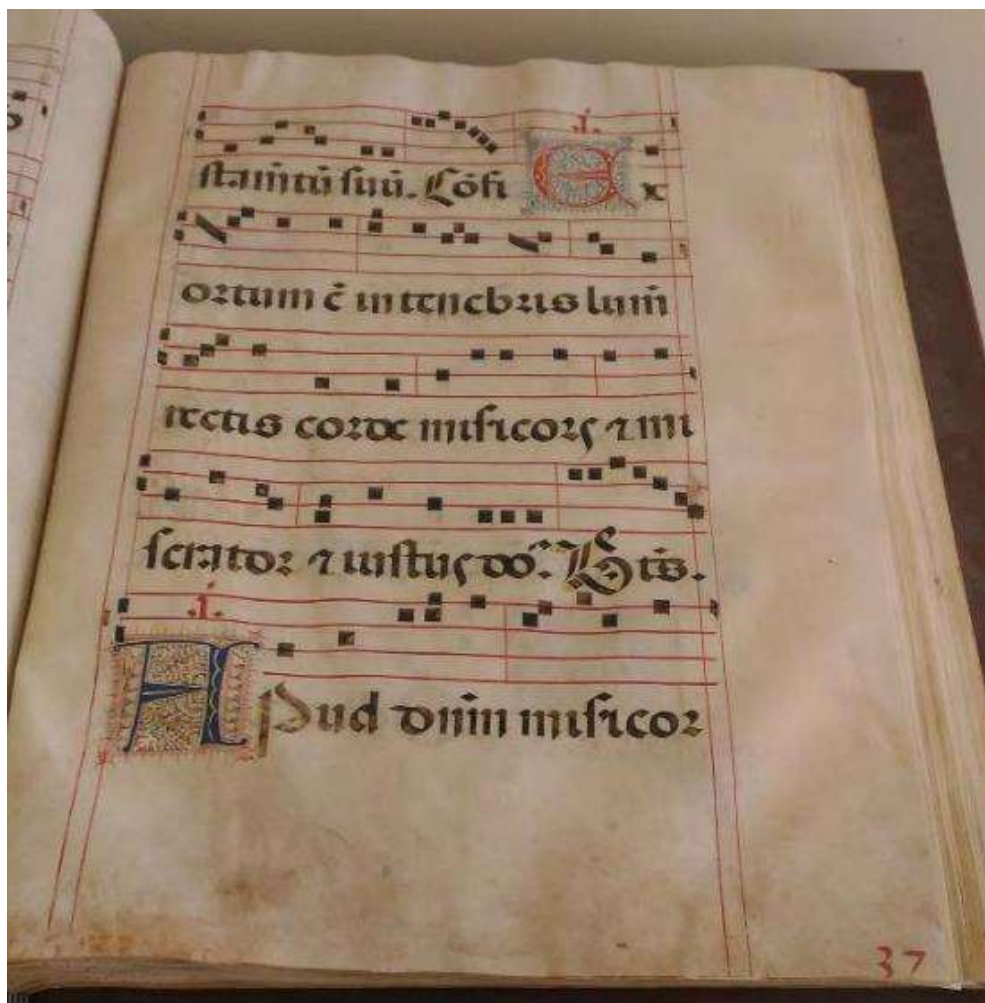 .i.
stam̄tū suū. Cōfi Ex
ortum ē in tenebris lum̄
rectis corde misicors ⁊ mi
serator ⁊ iustus dō². Btūs.
.i.
Apud dn̄m misicor
37